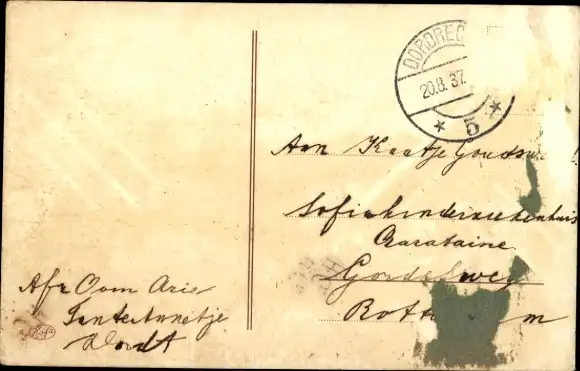 DORDREC
20.8.37.
* 5 *
Aan Kaatje Gouds
Sofiakinderziekenhuis
Barabaine
Gordelweg
Rott m
Afz Oom Arie
Tante Annetje
Dordt